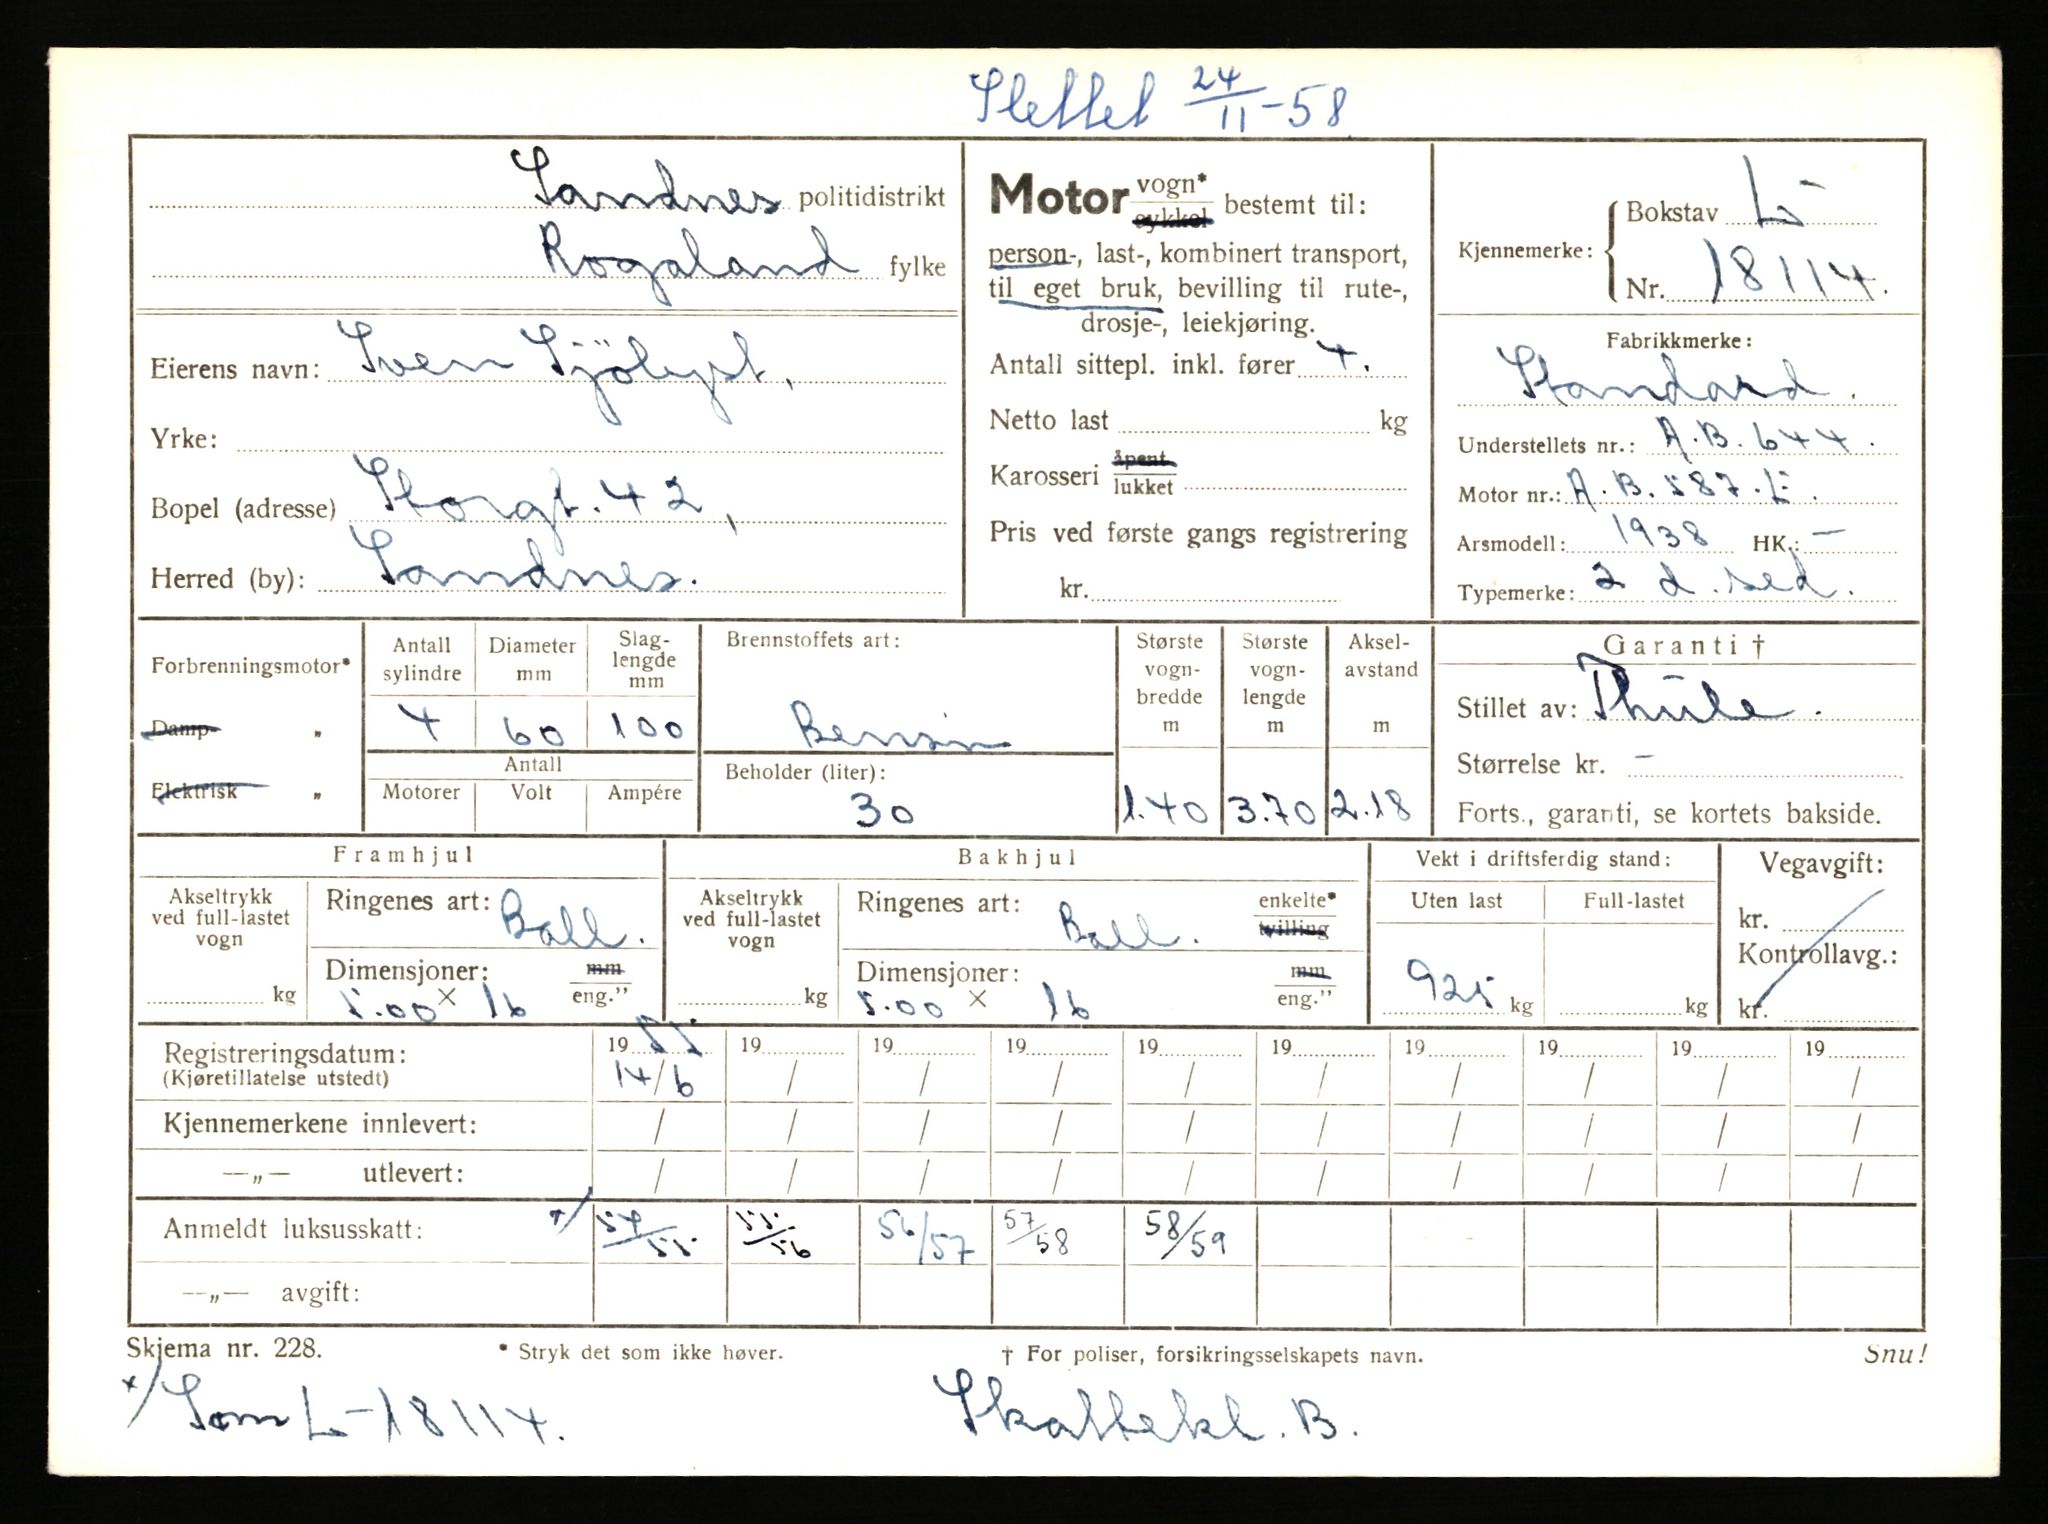 Slettet 24/11-58
Sandnes politidistrikt
Rogaland fylke
Eierens navn: Sven Sjölyst,
Yrke:
Bopel (adresse) Storgt. 42,
Herred (by): Sandnes.
Motor vogn* / sykkel bestemt til:
person-, last-, kombinert transport,
til eget bruk, bevilling til rute-,
drosje-, leiekjøring.
Antall sittepl. inkl. fører 4.
Netto last kg
Karosseri åpent / lukket
Pris ved første gangs registrering
kr.
Kjennemerke: Bokstav L
Nr. 18114.
Fabrikkmerke:
Standard.
Understellets nr.: A.B. 644.
Motor nr.: A.B. 587.E.
Arsmodell: 1938 HK.: –
Typemerke: 2 d. sed.
Forbrenningsmotor*
Damp- „
Elektrisk „
Antall sylindre
Diameter mm
Slag-lengde mm
4 60 100
Antall
Motorer Volt Ampére
Brennstoffets art:
Bensin
Beholder (liter):
30
Største vogn-bredde m
1.40
Største vogn-lengde m
3.70
Aksel-avstand m
2.18
Garanti †
Stillet av: Thule.
Størrelse kr. –
Forts., garanti, se kortets bakside.
Framhjul
Akseltrykk ved full-lastet vogn
kg
Ringenes art: Ball.
Dimensjoner: mm / eng.”
5.00 × 16
Bakhjul
Akseltrykk ved full-lastet vogn
kg
Ringenes art: Ball. enkelte* / tvilling
Dimensjoner: mm / eng.”
5.00 × 16
Vekt i driftsferdig stand:
Uten last Full-lastet
925 kg kg
Vegavgift:
kr.
Kontrollavg.:
kr.
Registreringsdatum: 19 55 19 19 19 19 19 19 19 19 19
(Kjøretillatelse utstedt) 14/6 / / / / / / / / /
Kjennemerkene innlevert: / / / / / / / / / /
—„— utlevert: / / / / / / / / / /
Anmeldt luksusskatt: x/ 54/55 55/56 56/57 57/58 58/59
—„— avgift:
Skjema nr. 228. * Stryk det som ikke høver. † For poliser, forsikringsselskapets navn. Snu!
x/ Som L-18114. Skattekl. B.